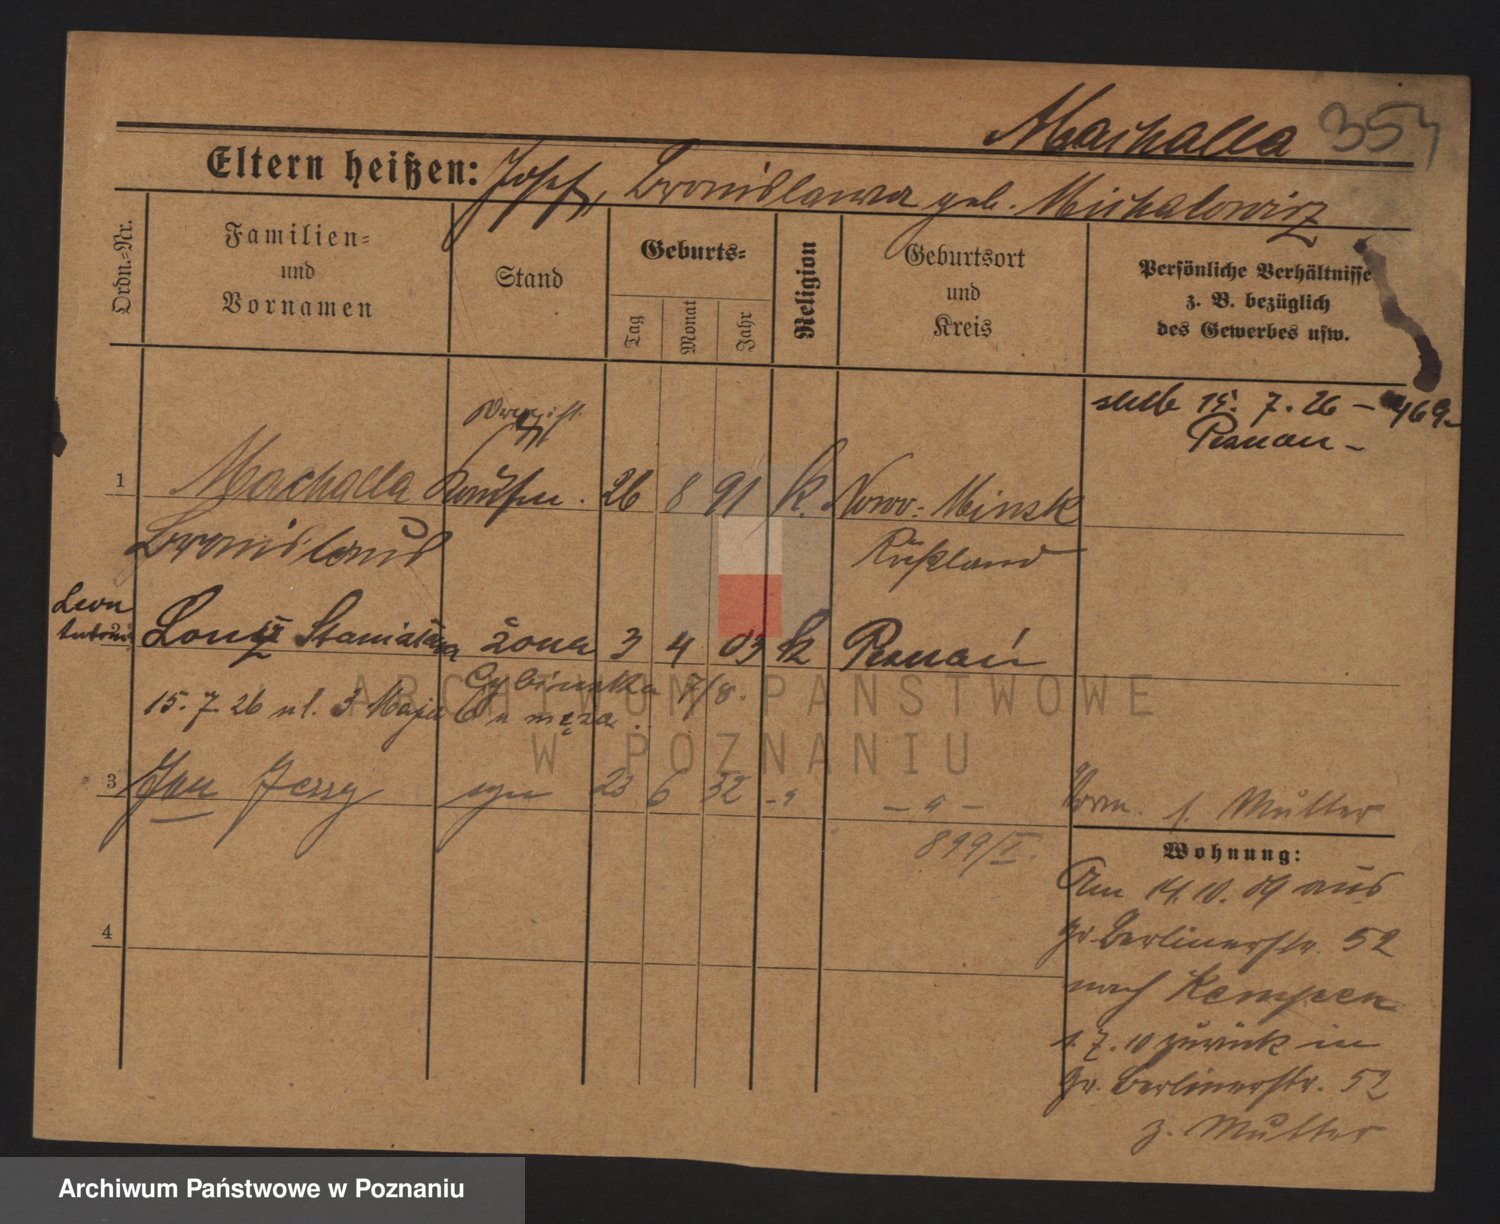 Machalla 354
Eltern heißen: Josef, Bronislawa geb. Michalowicz
Ordn.=Nr.
Familien=
und
Vornamen
Stand
Geburts=
Tag
Monat
Jahr
Religion
Geburtsort
und
Kreis
Persönliche Verhältnisse
z. B. bezüglich
des Gewerbes usw.
15. 7. 26 – 469
Poznań –
Drogist
1 Machalla Kaufm. 26 8 91 k. Nowo-Minsk
Bronislaus Rußland
Leon
Stanisława żona 3 4 03 k Poznań
Cybińska 7/8.
15. 7. 26 ul. 3 Maja 6 u męża
3 Jan Jerzy syn 23 6 32 - " - " -
Vorm. s. Mutter
899/I.
Wohnung:
Am 14. 10. 09 aus
Gr. Berlinerstr. 52
nach Kempen
1. 7. 10 zurück in
Gr. Berlinerstr. 52
z. Mutter
4
ARCHIWUM PAŃSTWOWE
W POZNANIU
Archiwum Państwowe w Poznaniu